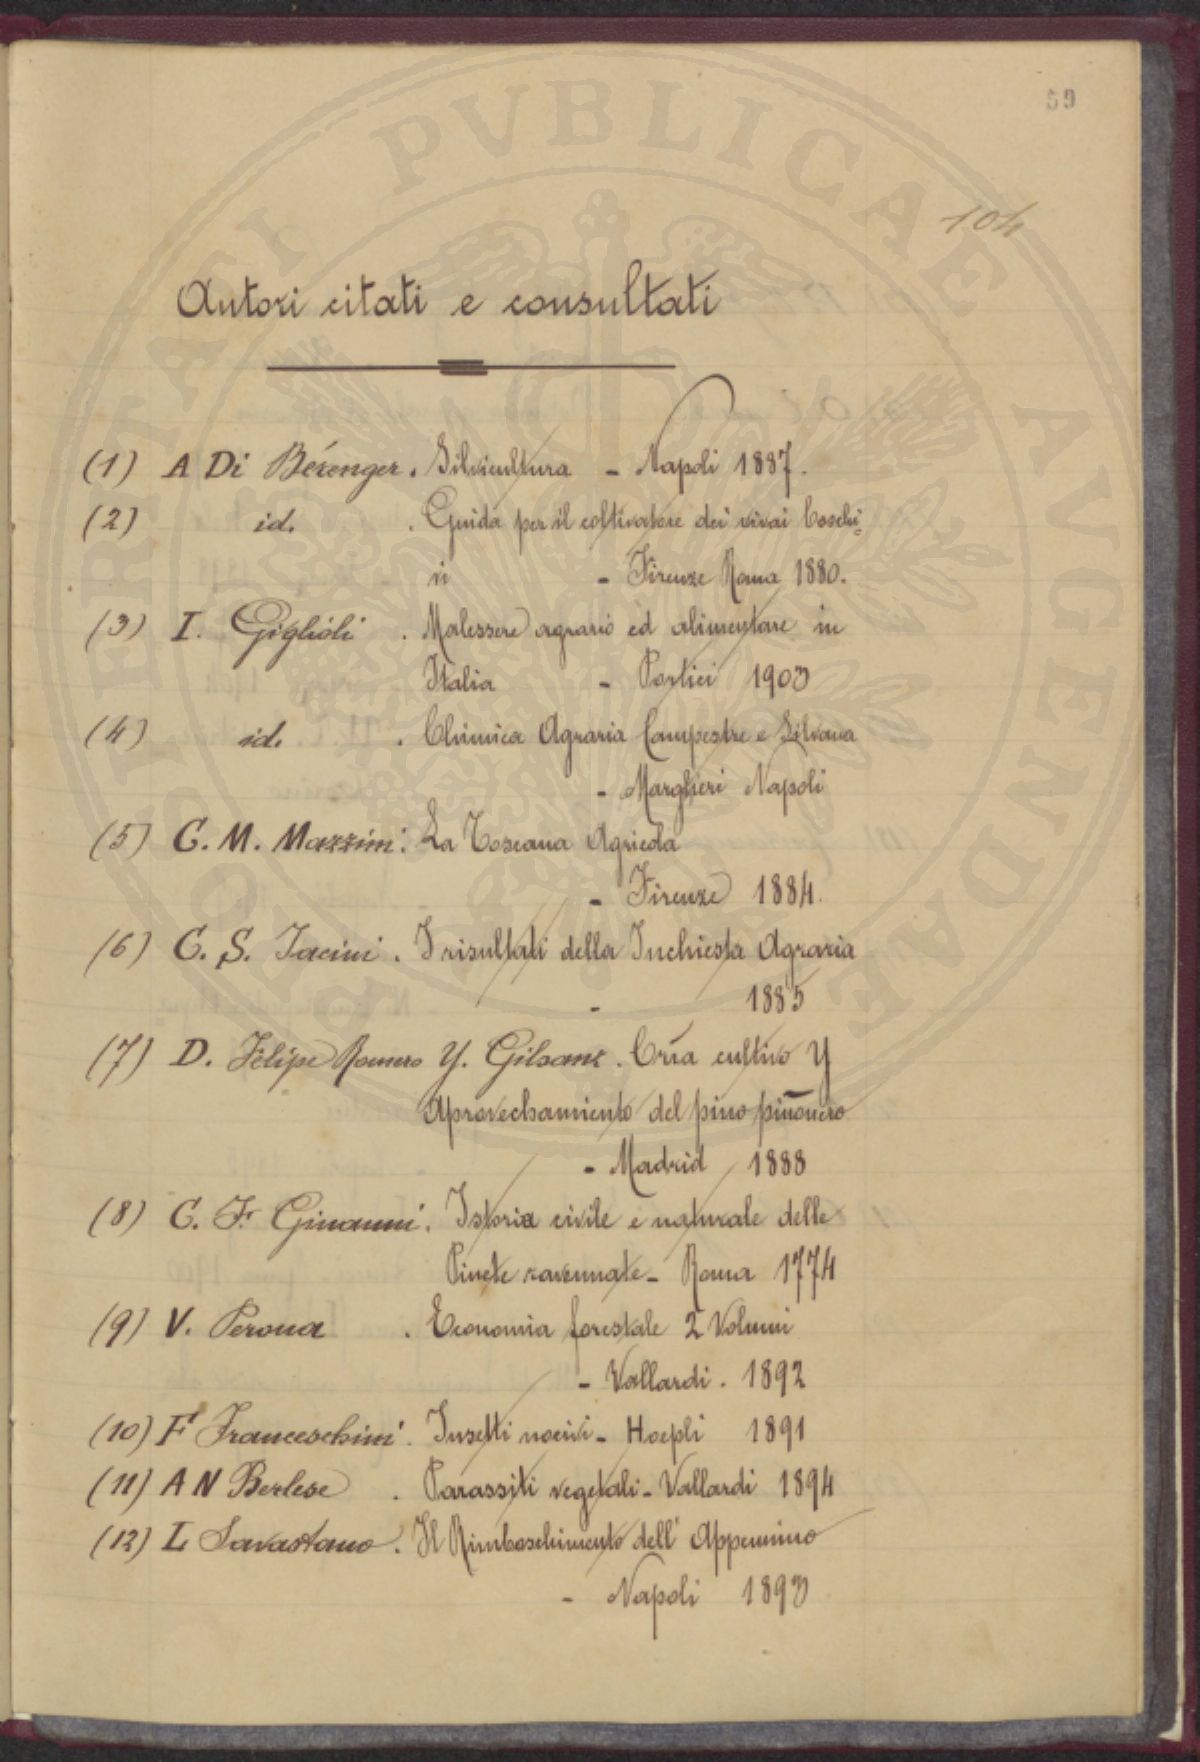 59
104
Autori citati e consultati
(1) A Di Bérenger. Silvicultura - Napoli 1887.
(2) id. . Guida per il coltivatore dei vivai boschi=
vi - Firenze Roma 1880.
(3) I. Giglioli . Malessere agrario ed alimentare in
Italia - Portici 1903
(4) id. . Chimica Agraria Campestre e Silvana
- Marghieri Napoli
(5) C. M. Mazzini. La Toscana Agricola
- Firenze 1884.
(6) C. S. Jacini. I risultati della Inchiesta Agraria
- 1885
(7) D. Felipe Romero Y. Gilsanz. Cría cultivo Y
Aprovechamiento del pino piñonero
- Madrid 1888
(8) C. F. Ginanni. Istoria civile e naturale delle
Pinete ravennate - Roma 1774
(9) V. Perona . Economia forestale 2 Volumi
- Vallardi. 1892
(10) F Franceschini. Insetti nocivi - Hoepli 1891
(11) A N Berlese . Parassiti vegetali - Vallardi 1894
(12) L Savastano. Il Rimboschimento dell' Appennino
- Napoli 1893
PROSPERITATI PVBLICAE AVGENDAE